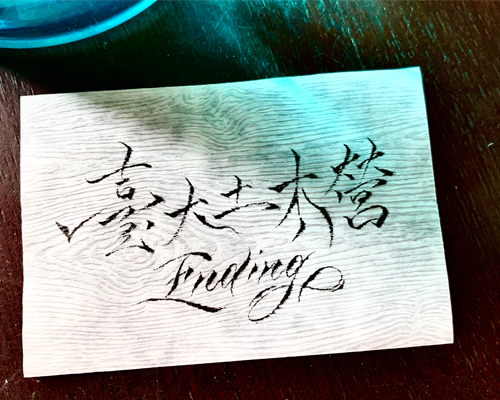 臺大土木營
Ending